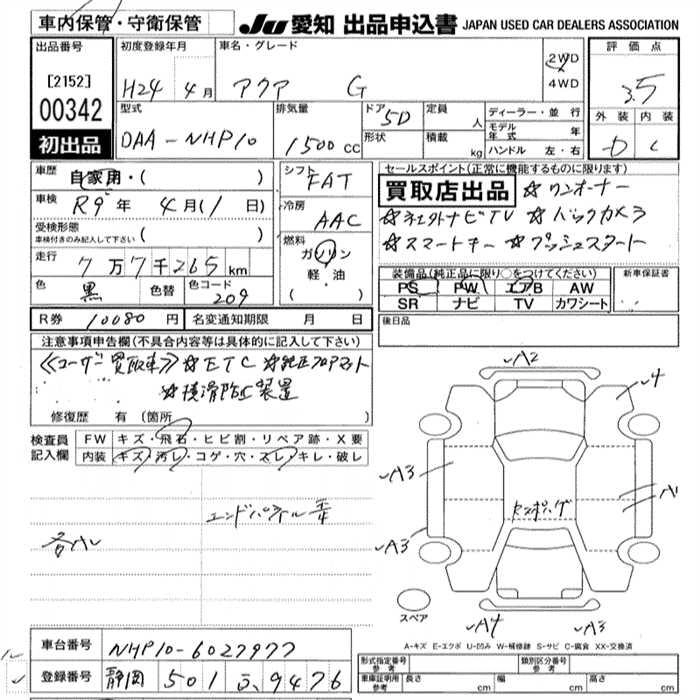 車内保管・守衛保管
JU 愛知 出品申込書 JAPAN USED CAR DEALERS ASSOCIATION
出品番号
[2152]
00342
初出品
初度登録年月
H24 4月
車名・グレード
アクア G
2WD
4WD
評価点
3.5
外装 内装
D C
型式
DAA-NHP10
排気量
1500 CC
ドア 5D
形状
定員 人
積載 kg
ディーラー・並行
モデル年式 年
ハンドル 左・右
車歴 自家用・( )
車検 R9年 4月(1日)
受検形態
車検付きのみ記入して下さい ( )
走行 7万7千265km
色 黒 色替 色コード 209
シフト FAT
冷房 AAC
燃料
ガソリン
軽・油
( ・ )
セールスポイント(正常に機能するものに限ります)
買取店出品 ☆ワンオーナー
☆ナビTV ☆バックカメラ
☆スマートキー ☆プッシュスタート
装備品(純正品に限り○をつけてください)
PS PW エアB AW
SR ナビ TV カワシート
新車保証書
R券 10080円 名変通知期限 月 日
後日品
注意事項申告欄(不具合内容等は具体的に記入して下さい)
《ユーザー買取車》☆ETC ☆純正フロアマット
☆横滑防止装置
修復歴 有(箇所
検査員
記入欄
FW キズ・飛石・ヒビ割・リペア跡・X要
内装 キズ・汚レ・コゲ・穴・スレ・キレ・破レ
エンドパネル
各
A2
4
A3
A1
A3
A4
A3
スペア
A-キズ E-エクボ U-凹み W-補修跡 S-サビ C-腐食 XX-交換済
車台番号 NHP10-6027977
登録番号 静岡 501 ふ 9476
形式指定番号 参考
類別区分番号 参考
車庫証明用 参考 長さ cm 幅 cm 高さ cm